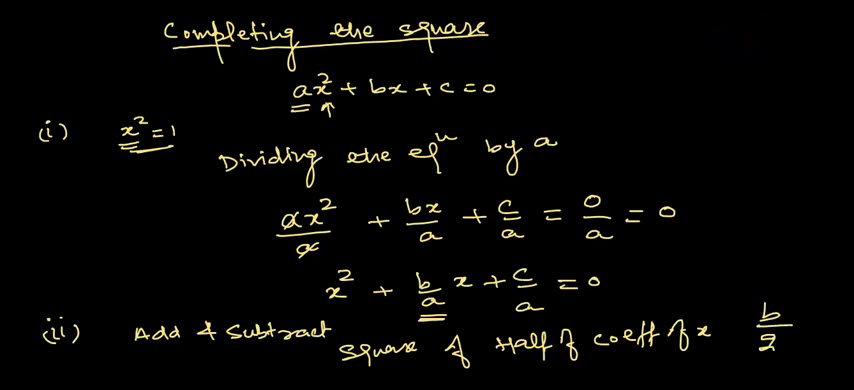 Completing the square
ax² + bx + c = 0
(i) x² = 1
Dividing the eqⁿ by a
ax²/a + bx/a + c/a = 0/a = 0
x² + b/a x + c/a = 0
(ii) Add & Subtract square of Half of coeff of x b/2